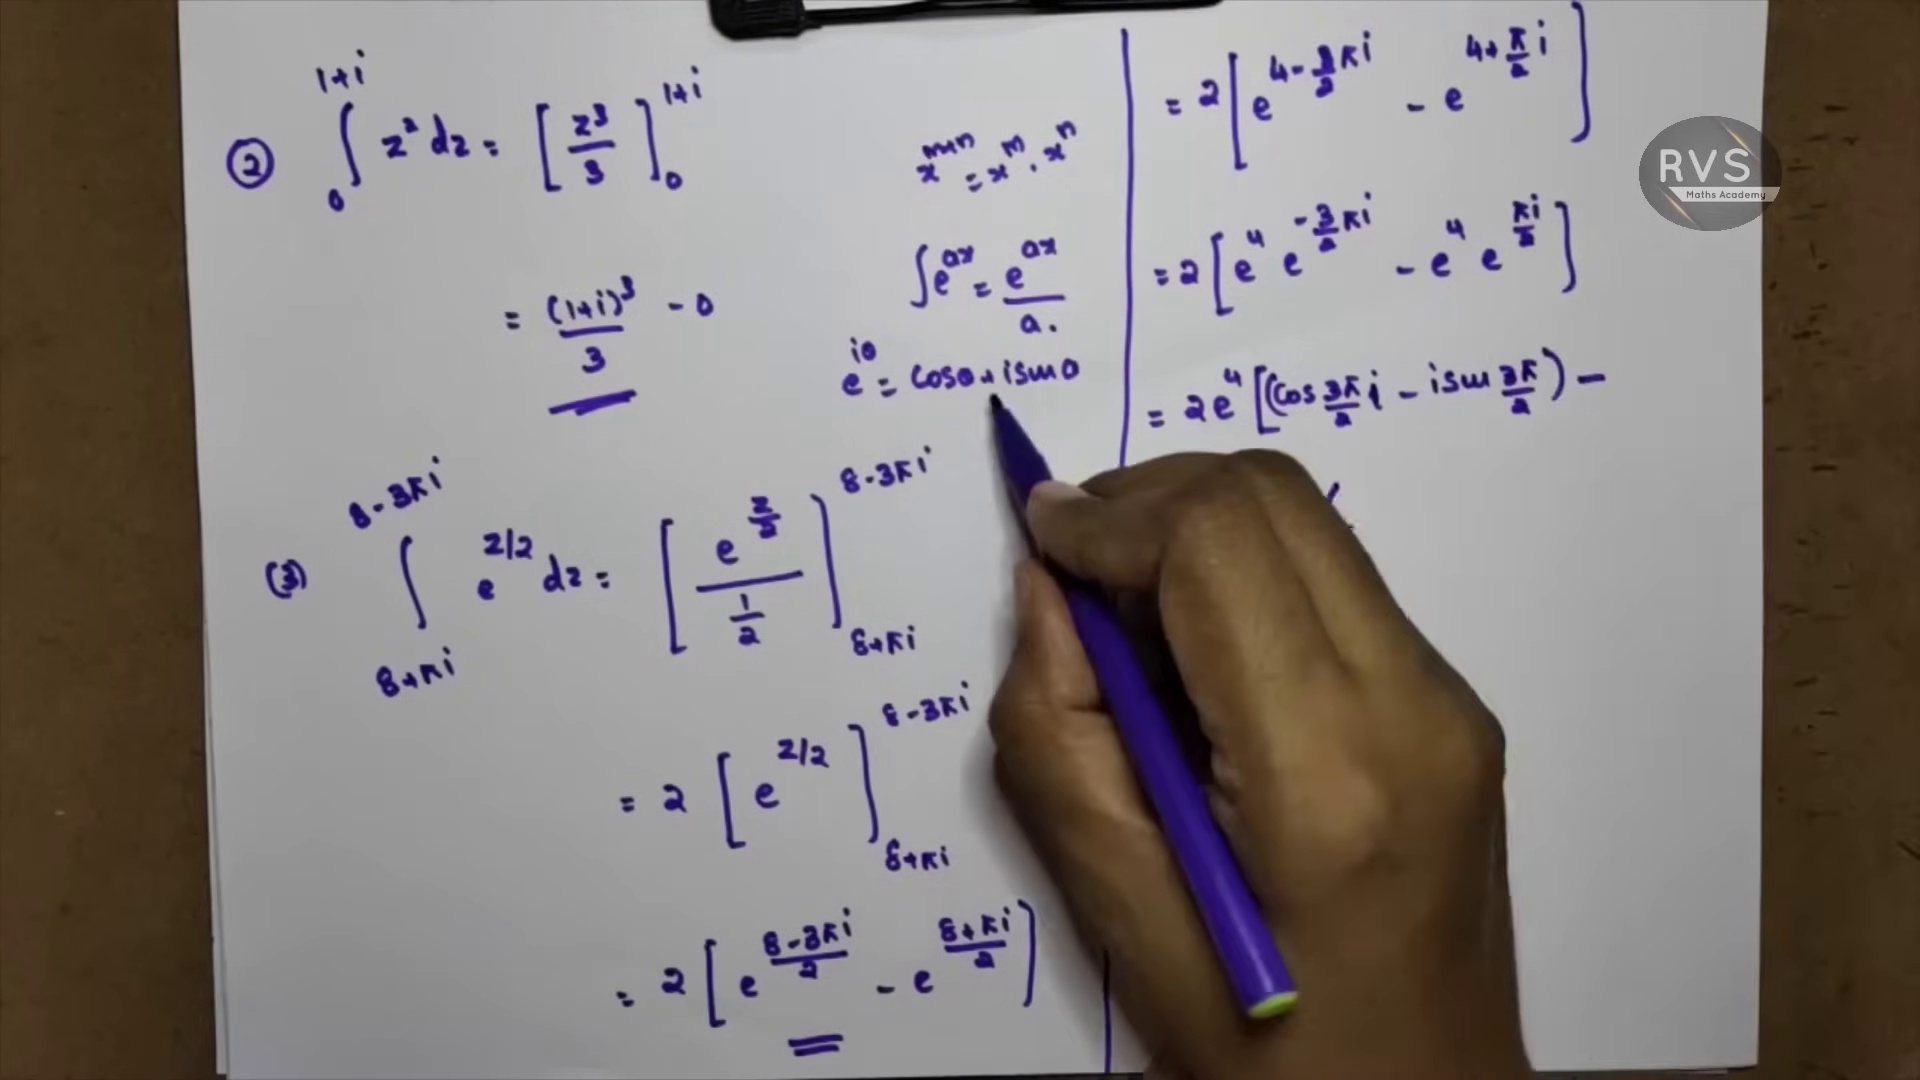 ② ∫₀^{1+i} z² dz = [z³/3]₀^{1+i}
= (1+i)³/3 - 0
x^{m+n} = x^m . x^n
∫e^{ax} = e^{ax}/a .
e^{iθ} = cosθ + i sinθ
(3) ∫_{8+πi}^{8-3πi} e^{z/2} dz = [e^{z/2} / (1/2)]_{8+πi}^{8-3πi}
= 2 [e^{z/2}]_{8+πi}^{8-3πi}
= 2 [e^{(8-3πi)/2} - e^{(8+πi)/2}]
= 2 [e^{4-(3/2)πi} - e^{4+(π/2)i}]
= 2 [e⁴ e^{-(3/2)πi} - e⁴ e^{πi/2}]
= 2e⁴ [(cos 3π/2 i - i sin 3π/2) -
RVS
Maths Academy